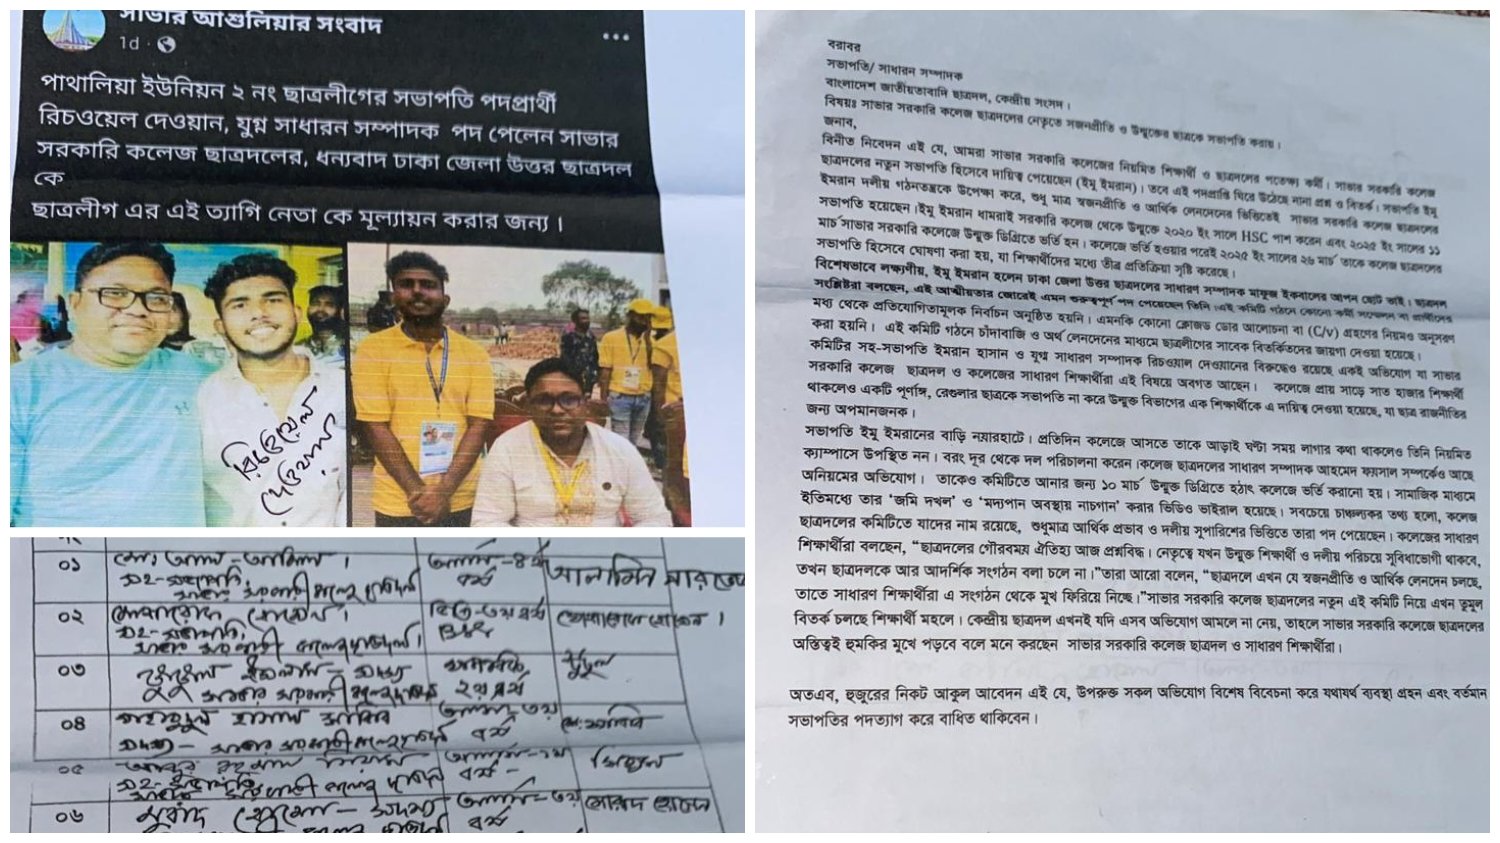 সাভার আশুলিয়ার সংবাদ
1d
পাথালিয়া ইউনিয়ন ২ নং ছাত্রলীগের সভাপতি পদপ্রার্থী
রিচওয়েল দেওয়ান, যুগ্ন সাধারন সম্পাদক পদ পেলেন সাভার
সরকারি কলেজ ছাত্রদলের, ধন্যবাদ ঢাকা জেলা উত্তর ছাত্রদল
কে
ছাত্রলীগ এর এই ত্যাগি নেতা কে মূল্যায়ন করার জন্য ।
রিচওয়েল
দেওয়ান
০১
০২
০৩
০৪
০৫
০৬
বরাবর
সভাপতি/ সাধারন সম্পাদক
বাংলাদেশ জাতীয়তাবাদি ছাত্রদল, কেন্দ্রীয় সংসদ ।
বিষয়ঃ সাভার সরকারি কলেজ ছাত্রদলের নেতৃতে সজনপ্রীতি ও উন্মুক্তের ছাত্রকে সভাপতি করায়।
জনাব,
বিনীত নিবেদন এই যে, আমরা সাভার সরকারি কলেজের নিয়মিত শিক্ষার্থী ও ছাত্রদলের পতেক্ষ্য কর্মী। সাভার সরকারি কলেজ
ছাত্রদলের নতুন সভাপতি হিসেবে দায়িত্ব পেয়েছেন (ইমু ইমরান)। তবে এই পদপ্রাপ্তি ঘিরে উঠেছে নানা প্রশ্ন ও বিতর্ক। সভাপতি ইমু
ইমরান দলীয় গঠনতন্ত্রকে উপেক্ষা করে, শুধু মাত্র স্বজনপ্রীতি ও আর্থিক লেনদেনের ভিত্তিতেই সাভার সরকারি কলেজ ছাত্রদলের
সভাপতি হয়েছেন।ইমু ইমরান ধামরাই সরকারি কলেজ থেকে উন্মুক্তে ২০২০ ইং সালে HSC পাশ করেন এবং ২০২৫ ইং সালের ১১
মার্চ সাভার সরকারি কলেজে উন্মুক্ত ডিগ্রিতে ভর্তি হন। কলেজে ভর্তি হওয়ার পরেই ২০২৫ ইং সালের ২৬ মার্চ তাকে কলেজ ছাত্রদলের
সভাপতি হিসেবে ঘোষণা করা হয়, যা শিক্ষার্থীদের মধ্যে তীব্র প্রতিক্রিয়া সৃষ্টি করেছে।
বিশেষভাবে লক্ষ্যণীয়, ইমু ইমরান হলেন ঢাকা জেলা উত্তর ছাত্রদলের সাধারণ সম্পাদক মাফুজ ইকবালের আপন ছোট ভাই। ছাত্রদল
সংশ্লিষ্টরা বলছেন, এই আত্মীয়তার জোরেই এমন গুরুত্বপূর্ণ পদ পেয়েছেন তিনি।এই কমিটি গঠনে কোনো কর্মী সম্মেলন বা প্রার্থীদের
মধ্য থেকে প্রতিযোগিতামূলক নির্বাচন অনুষ্ঠিত হয়নি। এমনকি কোনো ক্লোজড ডোর আলোচনা বা (C/v) গ্রহণের নিয়মও অনুসরণ
করা হয়নি। এই কমিটি গঠনে চাঁদাবাজি ও অর্থ লেনদেনের মাধ্যমে ছাত্রলীগের সাবেক বিতর্কিতদের জায়গা দেওয়া হয়েছে।
কমিটির সহ-সভাপতি ইমরান হাসান ও যুগ্ম সাধারণ সম্পাদক রিচওয়াল দেওয়ানের বিরুদ্ধেও রয়েছে একই অভিযোগ যা সাভার
সরকারি কলেজ ছাত্রদল ও কলেজের সাধারণ শিক্ষার্থীরা এই বিষয়ে অবগত আছেন। কলেজে প্রায় সাড়ে সাত হাজার শিক্ষার্থী
থাকলেও একটি পূর্ণাঙ্গ, রেগুলার ছাত্রকে সভাপতি না করে উন্মুক্ত বিভাগের এক শিক্ষার্থীকে এ দায়িত্ব দেওয়া হয়েছে, যা ছাত্র রাজনীতির
জন্য অপমানজনক।
সভাপতি ইমু ইমরানের বাড়ি নয়ারহাটে। প্রতিদিন কলেজে আসতে তাকে আড়াই ঘণ্টা সময় লাগার কথা থাকলেও তিনি নিয়মিত
ক্যাম্পাসে উপস্থিত নন। বরং দূর থেকে দল পরিচালনা করেন।কলেজ ছাত্রদলের সাধারণ সম্পাদক আহমেদ ফয়সাল সম্পর্কেও আছে
অনিয়মের অভিযোগ। তাকেও কমিটিতে আনার জন্য ১০ মার্চ উন্মুক্ত ডিগ্রিতে হঠাৎ কলেজে ভর্তি করানো হয়। সামাজিক মাধ্যমে
ইতিমধ্যে তার ‘জমি দখল’ ও ‘মদ্যপান অবস্থায় নাচগান’ করার ভিডিও ভাইরাল হয়েছে। সবচেয়ে চাঞ্চল্যকর তথ্য হলো, কলেজ
ছাত্রদলের কমিটিতে যাদের নাম রয়েছে, শুধুমাত্র আর্থিক প্রভাব ও দলীয় সুপারিশের ভিত্তিতে তারা পদ পেয়েছেন। কলেজের সাধারণ
শিক্ষার্থীরা বলছেন, “ছাত্রদলের গৌরবময় ঐতিহ্য আজ প্রশ্নবিদ্ধ। নেতৃত্বে যখন উন্মুক্ত শিক্ষার্থী ও দলীয় পরিচয়ে সুবিধাভোগী থাকবে,
তখন ছাত্রদলকে আর আদর্শিক সংগঠন বলা চলে না।”তারা আরো বলেন, “ছাত্রদলে এখন যে স্বজনপ্রীতি ও আর্থিক লেনদেন চলছে,
তাতে সাধারণ শিক্ষার্থীরা এ সংগঠন থেকে মুখ ফিরিয়ে নিচ্ছে।”সাভার সরকারি কলেজ ছাত্রদলের নতুন এই কমিটি নিয়ে এখন তুমুল
বিতর্ক চলছে শিক্ষার্থী মহলে। কেন্দ্রীয় ছাত্রদল এখনই যদি এসব অভিযোগ আমলে না নেয়, তাহলে সাভার সরকারি কলেজে ছাত্রদলের
অস্তিত্বই হুমকির মুখে পড়বে বলে মনে করছেন সাভার সরকারি কলেজ ছাত্রদল ও সাধারণ শিক্ষার্থীরা।
অতএব, হুজুরের নিকট আকুল আবেদন এই যে, উপরুক্ত সকল অভিযোগ বিশেষ বিবেচনা করে যথাযর্থ ব্যবস্থা গ্রহন এবং বর্তমান
সভাপতির পদত্যাগ করে বাধিত থাকিবেন।